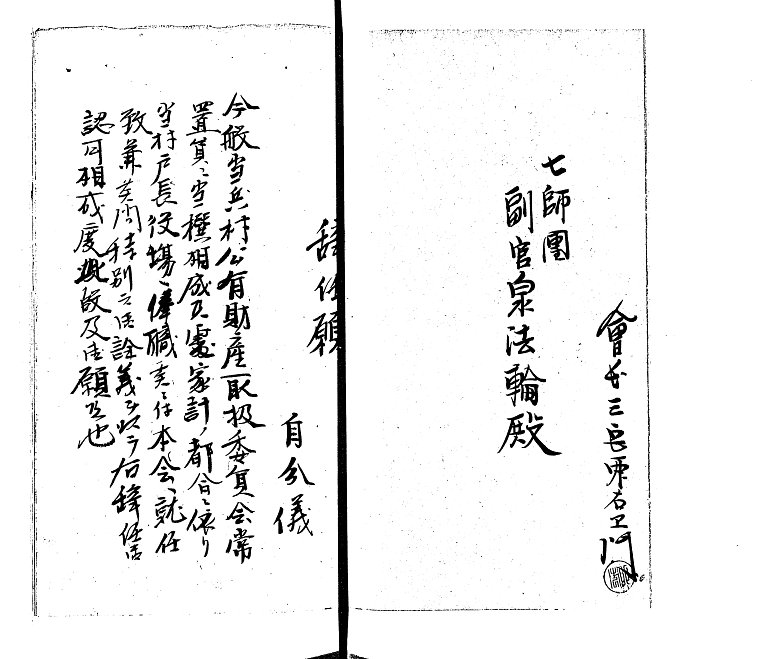 會長三
七師團
副官泉法輪殿
辞任願
自分儀
今般当兵村公有財産取扱委員会常
置員ニ当撰相成候處家計ノ都合ニ依リ
当村戸長役場ニ奉職 本会ニ就任
致兼 間特別之御詮義ヲ以テ右辞任
認可相成度此段及御願候也